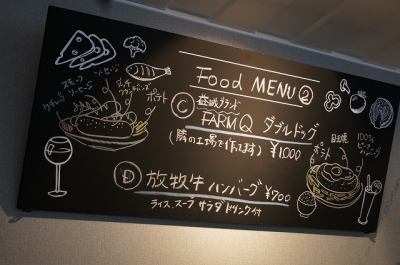 Food MENU ②
Ⓒ 益城ブランド
FARM Q ダブルドッグ
(隣の工場で作ってます) ¥1000
Ⓓ 放牧牛 ハンバーグ ¥900
ライス、スープ サラダ ドリンク付
スモーク
ソーセージ
ポテト
目玉焼
ポテト
100%
ビーフ
ハンバーグ